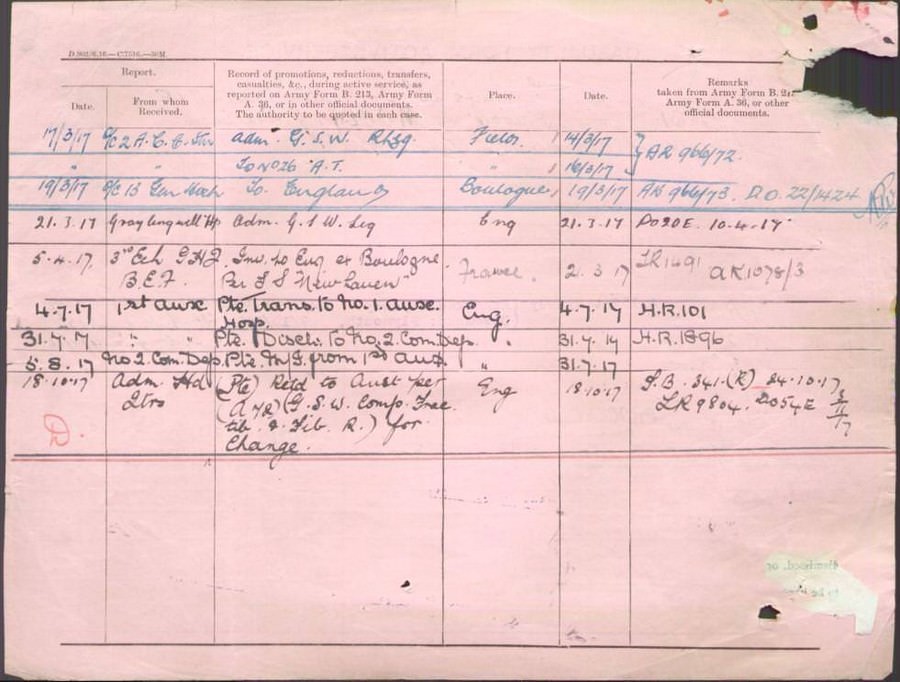 Report.
Record of promotions, reductions, transfers,
casualties, &c., during active service, as
reported on Army Form B. 213, Army Form
A. 36, or in other official documents.
The authority to be quoted in each case.
Date.
From whom
Received.
Place.
Date.
Remarks
taken from Army Form B.
Army Form A. 36, or other
official documents.
17/3/17 adm. G.S.W. R Leg. Field 14/3/17
" " To No 26 A.T. " 16/3/17 AR 966/72.
19/3/17 O/C 13 Gen To England Boulogne 19/3/17 AR 966/73. D.O. 22/1424
21.3.17 Adm. G.S.W. Leg Eng 21.3.17 DO20E. 10.4.17
5.4.17. 3rd Ech G.H.Q. Inv. to Eng ex Boulogne France. 2.3.17 LR1491 AR1078/3
B.E.F. Per S S "New Haven"
4.7.17 1st Auxc Pte. Trans. to No. 1. Auxc. Eng. 4.7.17 H.R.101
Hosp.
31.7.17 " " Pte. Disch. to No. 2. Com. Dep. " 31.7.17 H.R.1896
5.8.17 No 2. Com. Dep. Pte. M/I from 1st Aux. " 31.7.17
18.10.17 Adm. Hd (Pte) Retd to Aust per Eng 18.10.17 (R) 24.10.17
Qtrs (A72) (G.S.W. Comp. Frac LR9804. DO54E
tib. & Fib. R.) for
Change.
D.